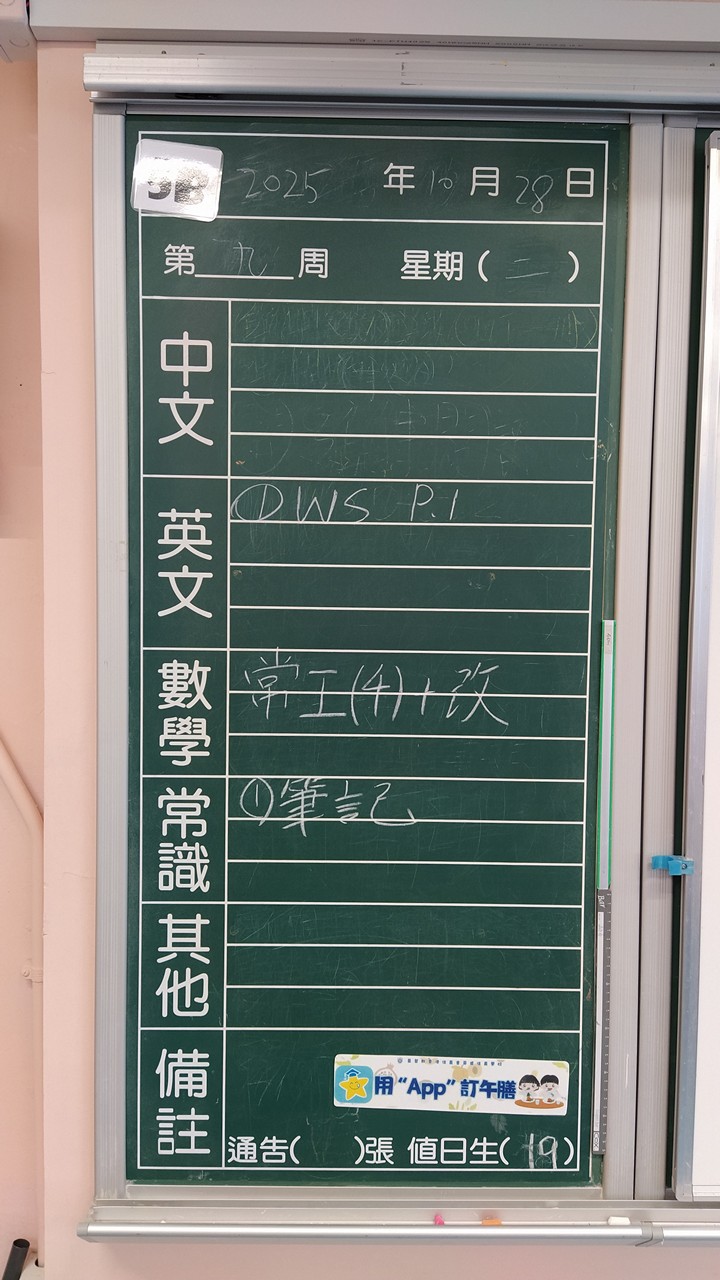 5B 2025 年 10 月 28 日
第 九 周 星期 ( 二 )
中文
英文
① WS P.1
數學
常工(4)+改
常識
①筆記
其他
備註
用“App”訂午膳
通告( )張 值日生( 19 )